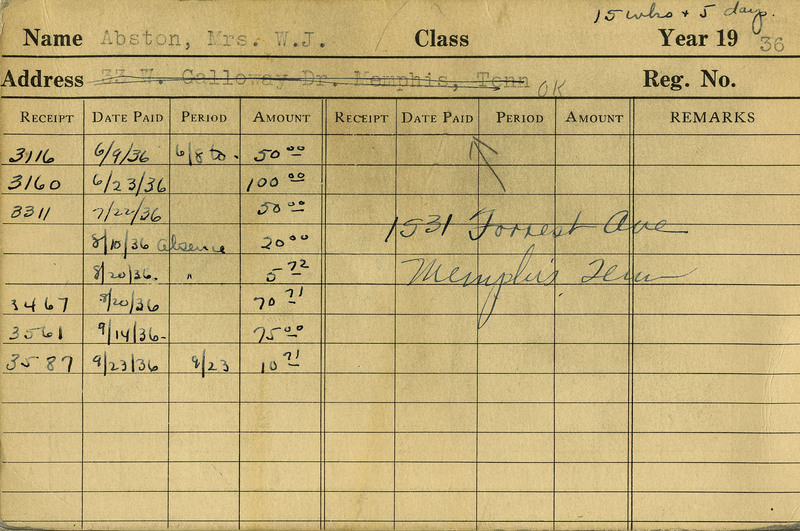 15 wks + 5 days.
Name Abston, Mrs. W.J. Class Year 19 36
Address 33 W. Galloway Dr. Memphis, Tenn OK Reg. No.
RECEIPT DATE PAID PERIOD AMOUNT RECEIPT DATE PAID PERIOD AMOUNT REMARKS
3116 6/9/36 6/8 to. 50 00
3160 6/23/36 100 00
3311 7/22/36 50 00
1531 Forrest Ave
8/10/36 Absence 20 00
Memphis, Tenn
8/20/36. " 5 72
3467 8/20/36 70 71
3561 9/14/36- 75 00
3587 9/23/36 9/23 10 71